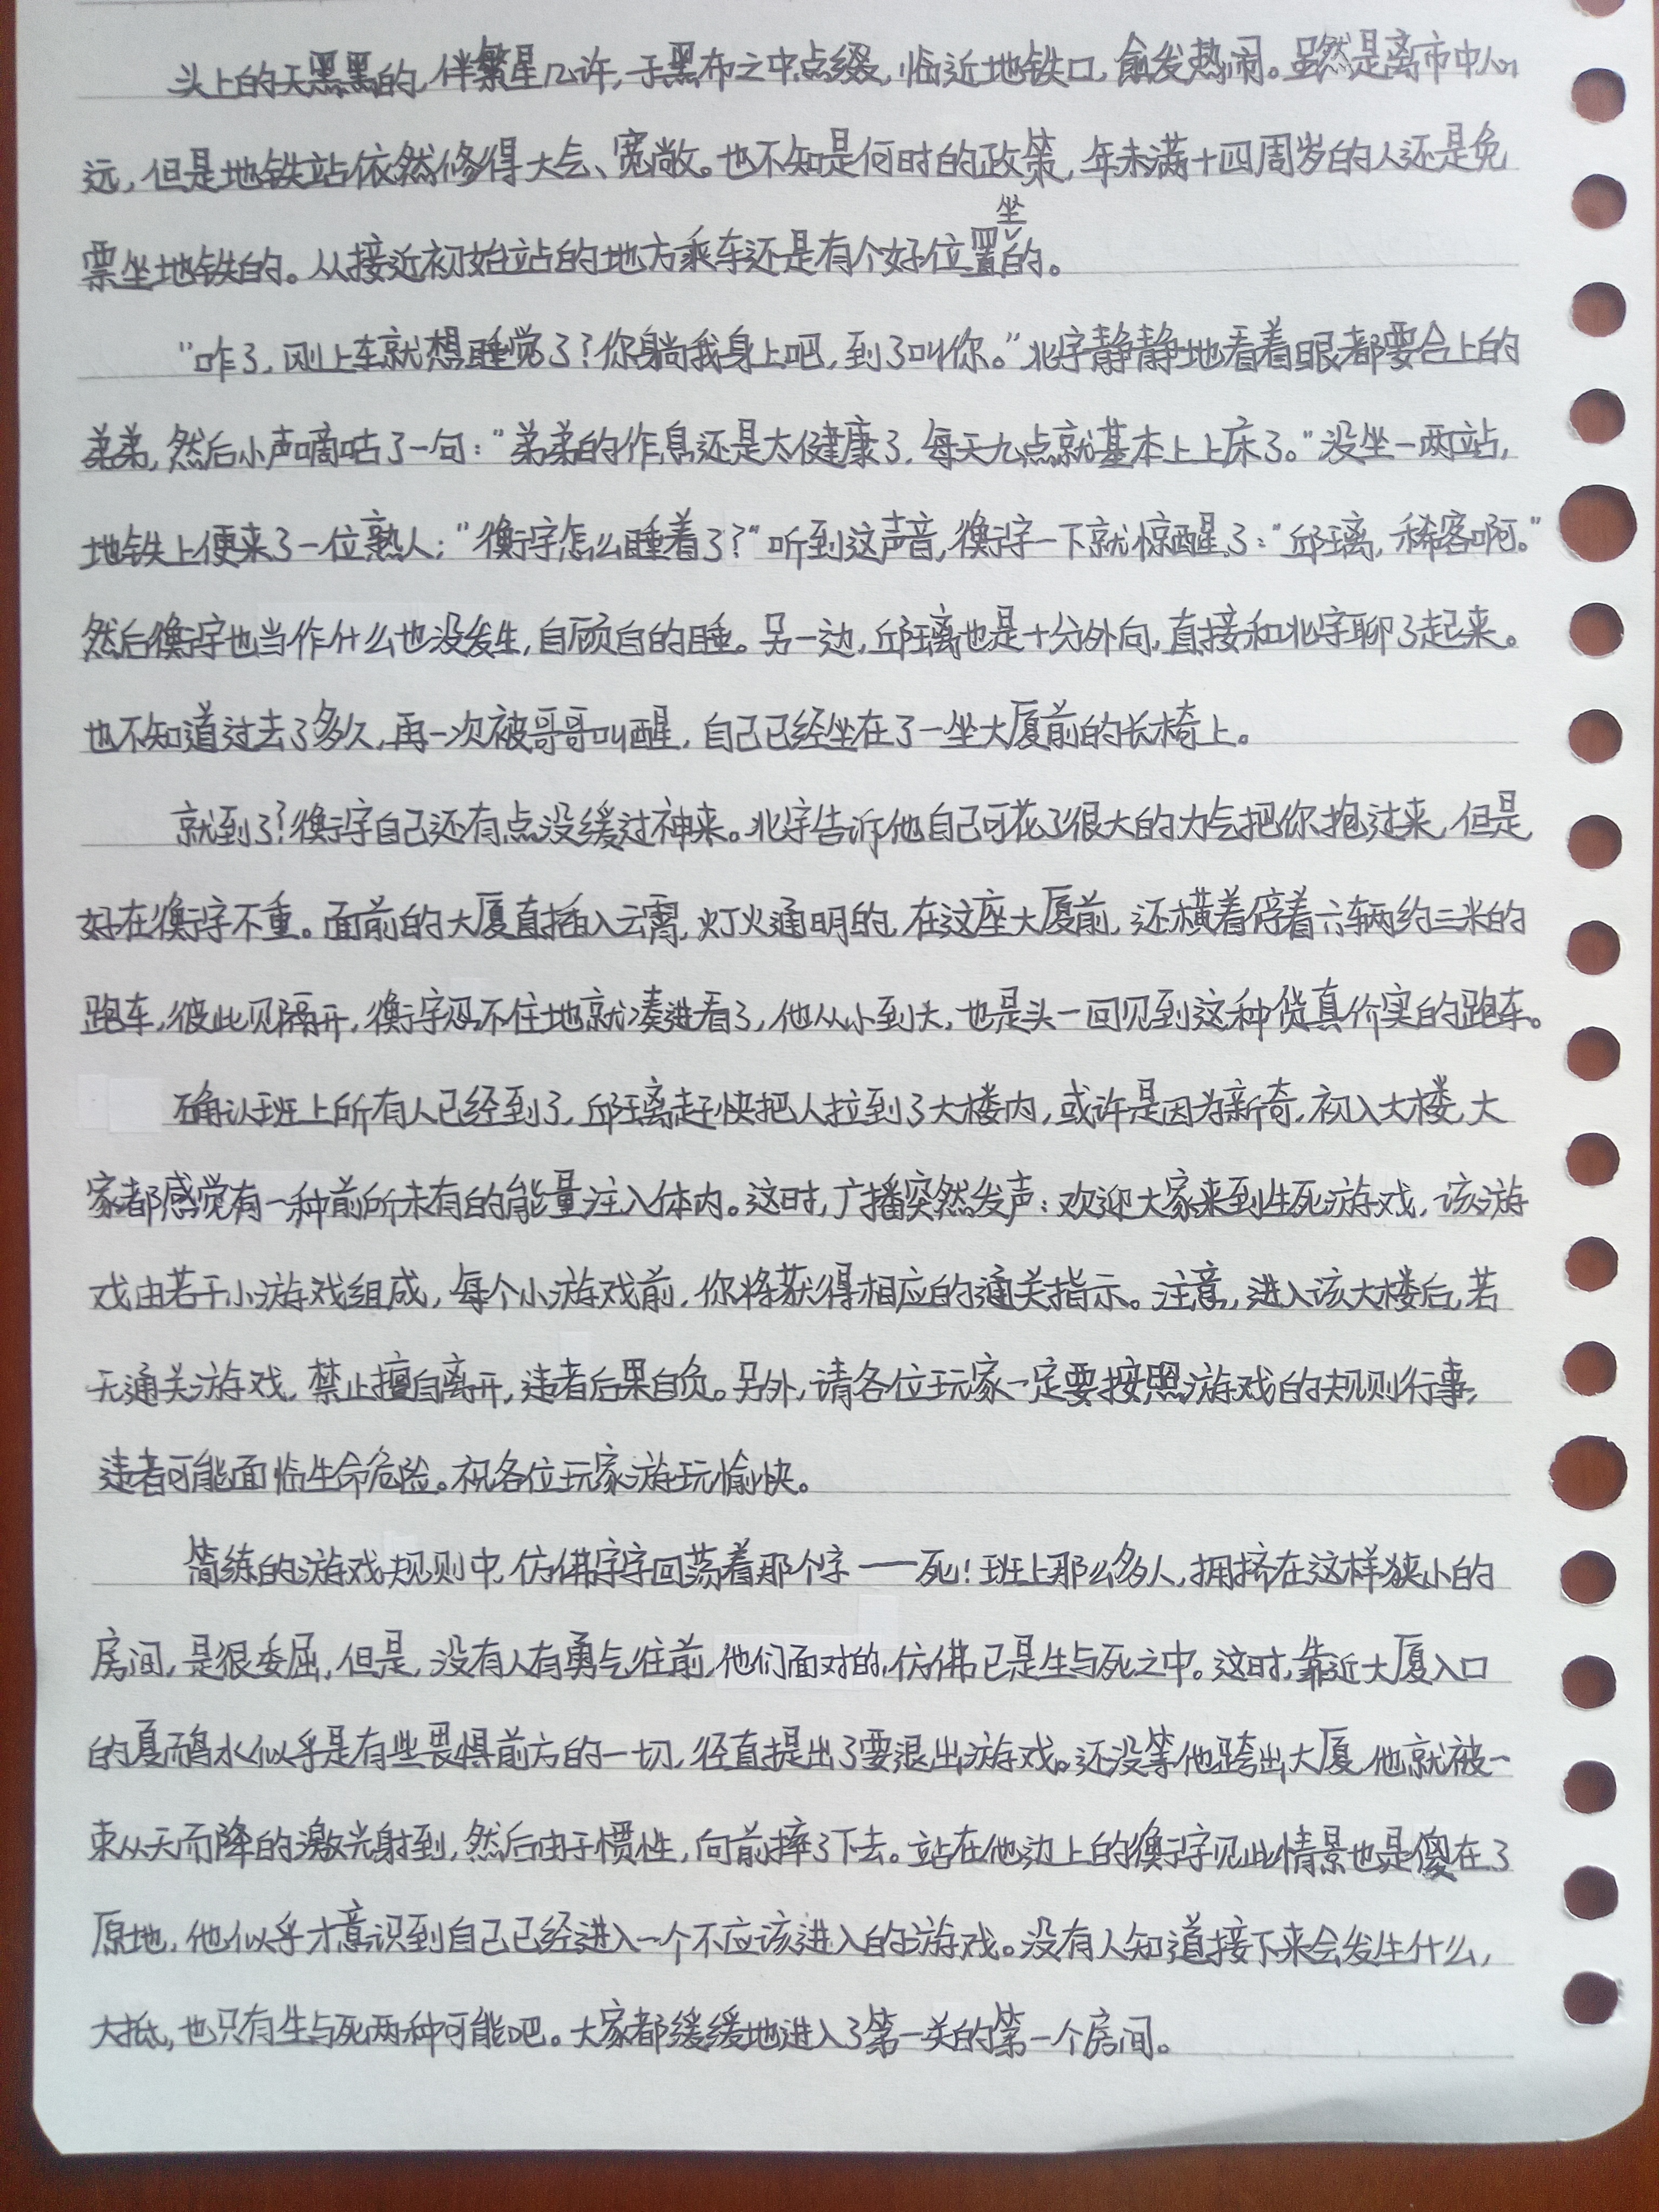 头上的天黑黑的，伴繁星几许，于黑布之中点缀，临近地铁口，愈发热闹。虽然是离市中心
远，但是地铁站依然修得大气、宽敞。也不知是何时的政策，年未满十四周岁的人还是免
票坐地铁的。从接近初始站的地方乘车还是有个好位置坐的。
“咋了，刚上车就想睡觉了？你躺我身上吧，到了叫你。”北宇静静地看着眼都要合上的
弟弟，然后小声嘀咕了一句：“弟弟的作息还是太健康了，每天九点就基本上上床了。”没坐一两站，
地铁上便来了一位熟人；“衡宇怎么睡着了？”听到这声音，衡宇一下就惊醒了：“邱璃，稀客啊。”
然后衡宇也当作什么也没发生，自顾自的睡。另一边，邱璃也是十分外向，直接和北宇聊了起来。
也不知道过去了多久，再一次被哥哥叫醒，自己已经坐在了一坐大厦前的长椅上。
就到了？衡宇自己还有点没缓过神来。北宇告诉他自己可花了很大的力气把你抱过来，但是
好在衡宇不重。面前的大厦直插入云霄，灯火通明的，在这座大厦前，还横着停着六辆约三米的
跑车，彼此见隔开，衡宇忍不住地就凑进看了，他从小到大，也是头一回见到这种货真价实的跑车。
确认班上所有人已经到了，邱璃赶快把人拉到了大楼内，或许是因为新奇，初入大楼，大
家都感觉有一种前所未有的能量注入体内。这时，广播突然发声：欢迎大家来到生死游戏，该游
戏由若干小游戏组成，每个小游戏前，你将获得相应的通关指示。注意，进入该大楼后，若
无通关游戏，禁止擅自离开，违者后果自负。另外，请各位玩家一定要按照游戏的规则行事，
违者可能面临生命危险。祝各位玩家游玩愉快。
简练的游戏规则中，仿佛字字回荡着那个字——死！班上那么多人，拥挤在这样狭小的
房间，是很委屈，但是，没有人有勇气往前，他们面对的，仿佛已是生与死之中。这时，靠近大厦入口
的夏禹水似乎是有些畏惧前方的一切，径直提出了要退出游戏。还没等他跨出大厦，他就被一
束从天而降的激光射到，然后由于惯性，向前摔了下去。站在他边上的衡宇见此情景也是傻在了
原地，他似乎才意识到自己已经进入一个不应该进入的游戏。没有人知道接下来会发生什么，
大抵，也只有生与死两种可能吧。大家都缓缓地进入了第一关的第一个房间。